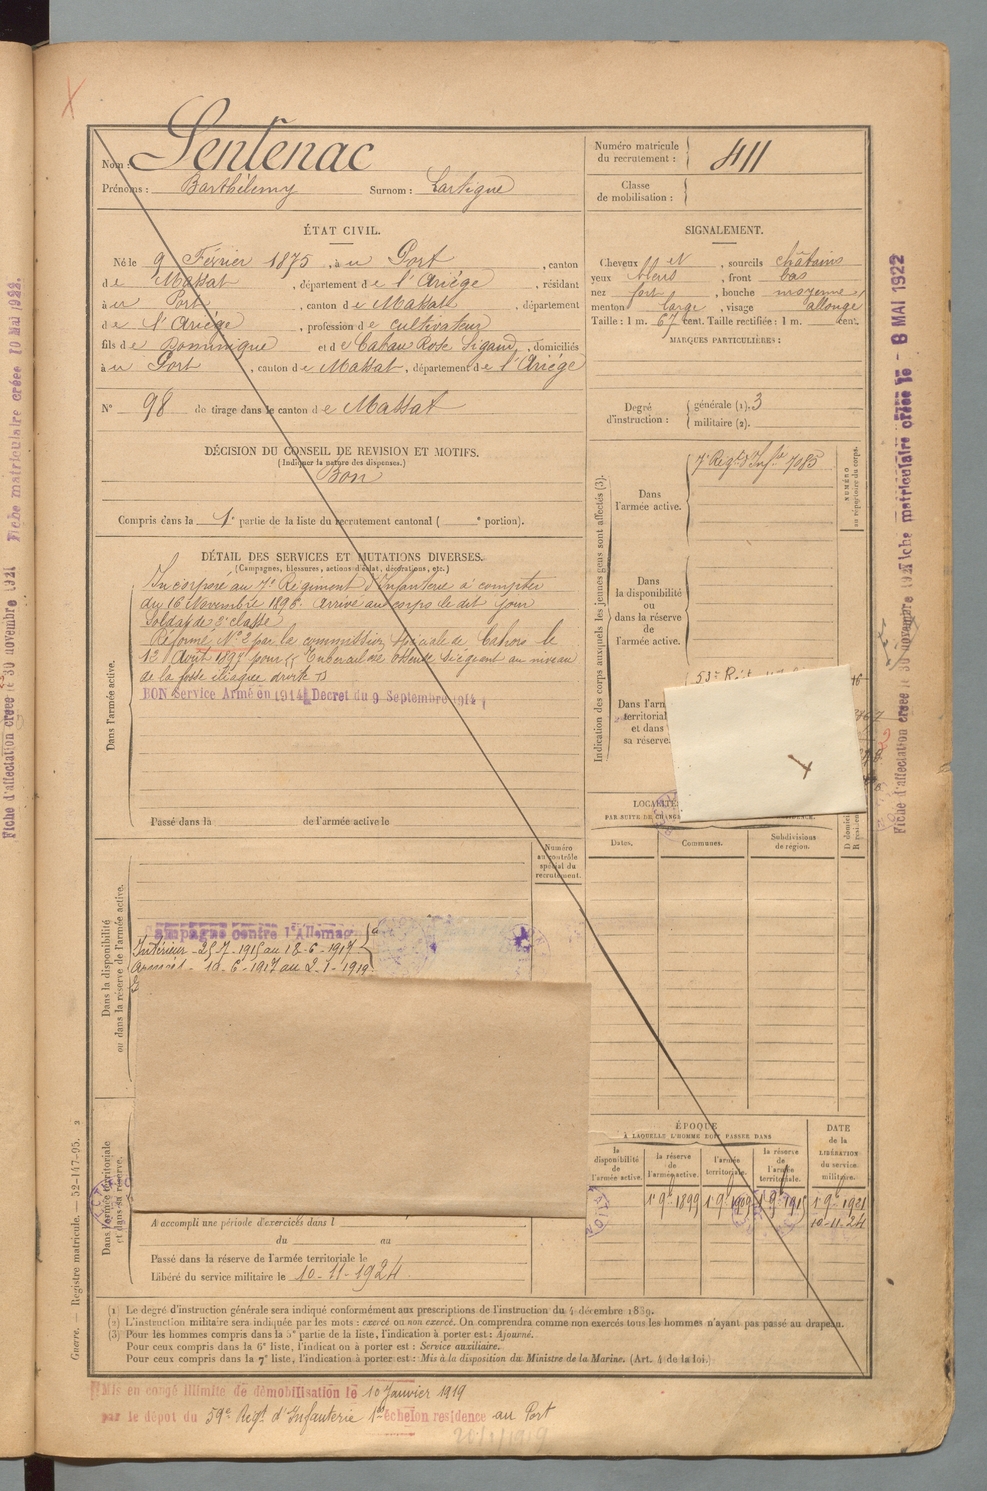 X
Sentenac
Nom :
Prénoms : Barthélemy Surnom : Lartigue
ÉTAT CIVIL.
Né le 9 Février 1875, à u Port, canton
d e Massat, département d e l'Ariège, résidant
à u Port, canton d e Massat, département
d e l'Ariège, profession d e cultivateur
fils d e Dominique et d e Cabau Rose Sigaud, domiciliés
à u Port, canton d e Massat, département d e l'Ariège
N° 98 de tirage dans le canton d e Massat
DÉCISION DU CONSEIL DE REVISION ET MOTIFS.
(Indiquer la nature des dispenses.)
Bon
Compris dans la 1e partie de la liste du recrutement cantonal ( e portion).
DÉTAIL DES SERVICES ET MUTATIONS DIVERSES.
(Campagnes, blessures, actions d'éclat, décorations, etc.)
Dans l'armée active.
Incorporé au 7e Régiment d'Infanterie à compter
du 16 Novembre 1896 arrivé au corps le dit jour
Soldat de 2e classe
Réformé N° 2 par la commission spéciale de Cahors le
13 Août 1897 pour
de la fosse iliaque droite
BON Service Armé en 1914 Décret du 9 Septembre 1914
Passé dans la de l'armée active le
Numéro
au contrôle
spécial du
recrutement.
Dans la disponibilité
ou dans la réserve de l'armée active.
Campagne contre l'Allemagne
Intérieur - 25-7-1915 au 18-6-1917
Armées - 19-6-1917 au 2-1-1919
Dans l'armée territoriale
et dans sa réserve.
A accompli une période d'exercices dans l
du au
Passé dans la réserve de l'armée territoriale le
Libéré du service militaire le 10-11-1924
Numéro matricule
du recrutement : 411
Classe
de mobilisation :
SIGNALEMENT.
Cheveux et, sourcils châtains
yeux bleus, front bas
nez fort, bouche moyenne
menton large, visage allongé
Taille : 1 m. 67 cent. Taille rectifiée : 1 m. cent.
MARQUES PARTICULIÈRES :
Degré
d'instruction :
générale (1). 3
militaire (2).
Indication des corps auxquels les jeunes gens sont affectés (3).
NUMÉRO
au répertoire du corps.
Dans
l'armée active.
7e Regt d'Infie 7085
Dans
la disponibilité
ou
dans la réserve
de
l'armée active.
Dans l'arm
territorial
et dans
sa réserve.
LOCALITÉS
PAR SUITE DE CHANG
Dates.
Communes.
Subdivisions
de région.
ÉPOQUE
À LAQUELLE L'HOMME DOIT PASSER DANS
la
disponibilité
de
l'armée active.
la réserve
de
l'armée active.
l'armée
territoriale.
la réserve
de
l'armée
territoriale.
DATE
de la
LIBÉRATION
du service
militaire.
1 9bre 1899 1 9bre 1909 1 9bre 1915 1 9bre 1921
10-11-24
(1) Le degré d'instruction générale sera indiqué conformément aux prescriptions de l'instruction du 4 décembre 1889.
(2) L'instruction militaire sera indiquée par les mots : exercé ou non exercé. On comprendra comme non exercés tous les hommes n'ayant pas passé au drapeau.
(3) Pour les hommes compris dans la 5e partie de la liste, l'indication à porter est : Ajourné.
Pour ceux compris dans la 6e liste, l'indication à porter est : Service auxiliaire.
Pour ceux compris dans la 7e liste, l'indication à porter est : Mis à la disposition du Ministre de la Marine. (Art. 4 de la loi.)
Mis en congé illimité de démobilisation le 10 Janvier 1919
par le dépôt du 59e Regt d'Infanterie 1er échelon résidence au Port
Guerre. — Registre matricule. — 52-147-95. 2
Fiche d'affectation créée le 30 novembre 1921 Fiche matriculaire créée le 8 MAI 1922
Fiche d'affectation créée le 30 novembre 1921 Fiche matriculaire créée 10 Mai 1922.